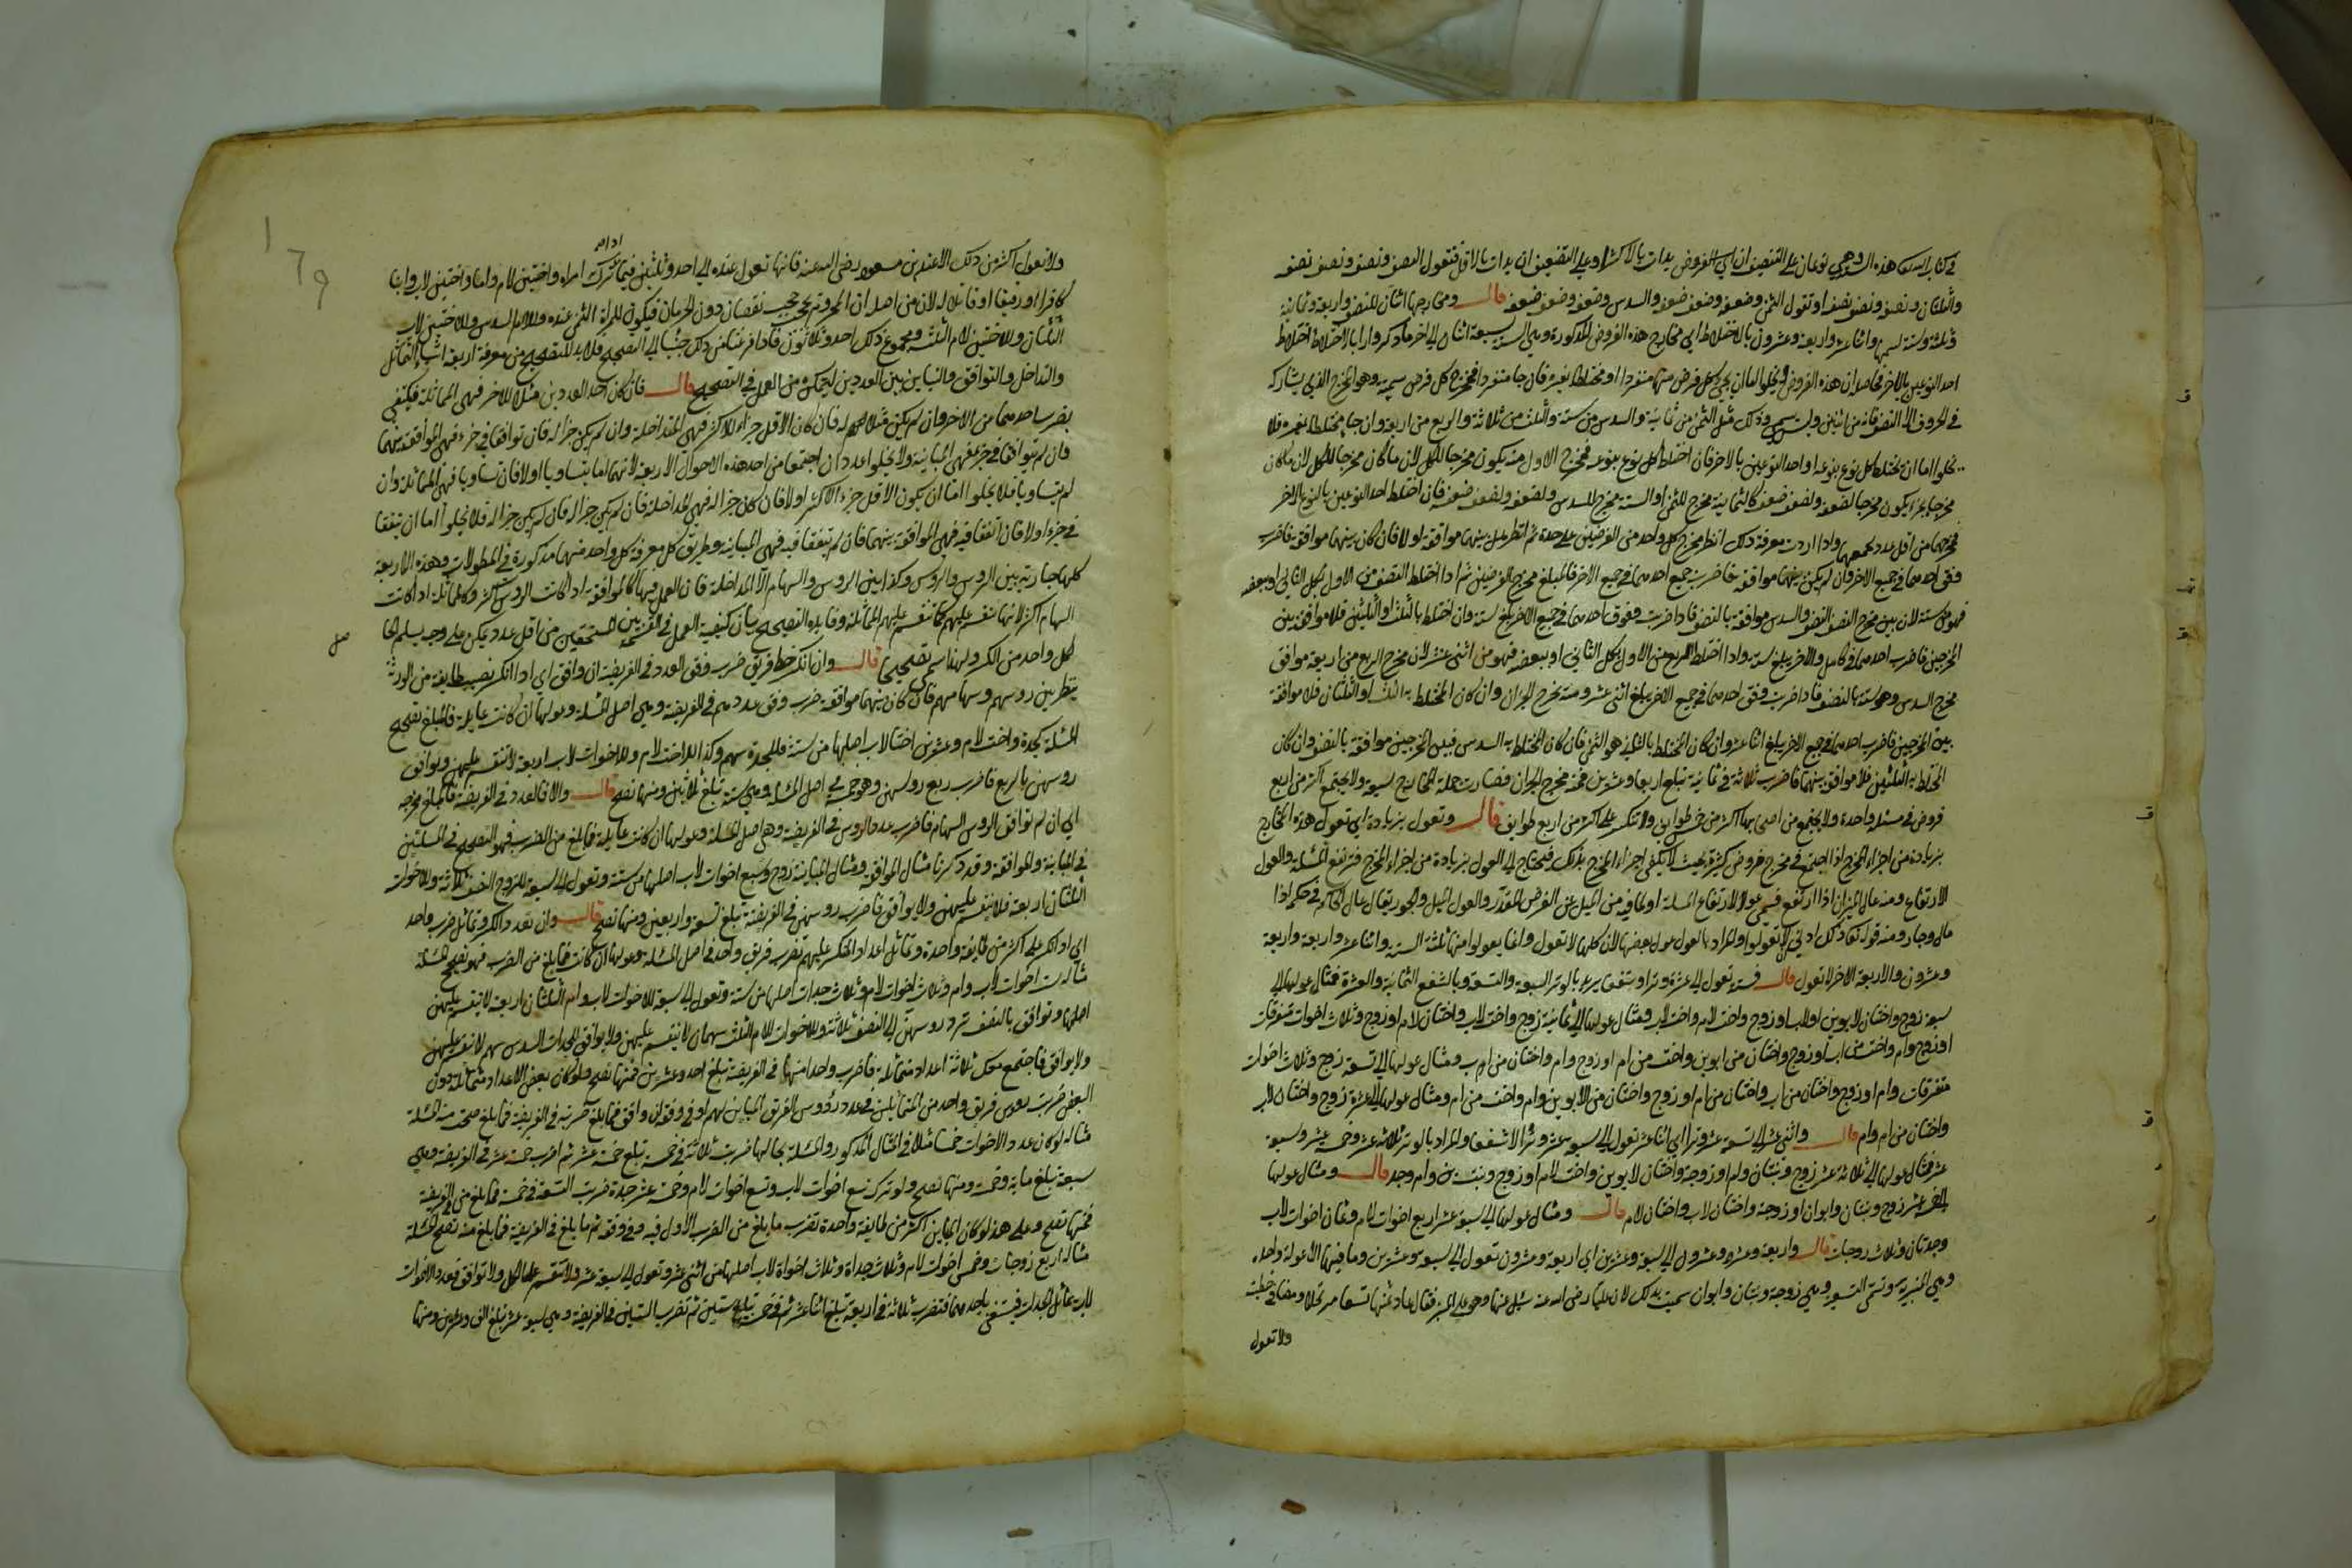 في كتاب الله تعالى هذه الستة وهي نوعان على التنصيف ان
والثلثان ونصفه ونصف نصفه او تقول الثمن وضعفه وضعف ضعفه والسدس وضعفه وضعف ضعفه قال ومخارجها اثنان للنصف واربعة وثمانية
وثلثة وستة لسميها واثنا عشر واربعة وعشرون بالاختلاط اي مخارج هذه الفروض المذكورة وهي الستة سبعة اثنان الى اخر ما ذكر وارادا بالاختلاط اختلاط
احد النوعين بالاخر
في الحروف الا النصف فانه من اثنين وليس سمي وذلك مثل الثمن من ثمانية والسدس من ستة والثلث من ثلاثة والربع من اربعة وان جا مختلطا بغيره فلا
يخلوا اما ان يختلط كل نوع بنوعه او احد النوعين بالاخر فان اختلط كل نوع بنوعه فمخرج الاول منه يكون مخرجا للكل لان ما كان مخرجا للكل لان ما كان
مخرجا لجزء يكون مخرجا لضعفه ولضعف ضعفه كالثمانية مخرج للثمن والستة مخرج للسدس ولضعفه ولضعف ضعفه فان اختلط احد النوعين بالنوع الاخر
فمخرجهما من اقل عدد يجمعهما واذا اردت معرفة ذلك انظر مخرج كل واحد من الفرضين على حدة ثم انظر هل بينهما موافقة اولا فان كان بينهما موافقة فاضرب
وفق احدهما في جميع الاخر وان لم يكن بينهما موافقة فاضرب جميع احدهما في جميع الاخر فالمبلغ مخرج الفرضين ثم اذا اختلط النصف من الاول بكل الثاني او ببعضه
فهو من ستة لان بين مخرج النصف والسدس موافقة بالنصف فاذا ضربت وفق احدهما في جميع الاخر بلغ ستة وان اختلط بالثلث او الثلثين فلا موافقة بين
المخرجين فاضرب احدهما في كامل الاخر يبلغ ستة واذا اختلط الربع من الاول بكل الثاني او ببعضه فهو من اثني عشر لان مخرج الربع من اربعة موافق
مخرج السدس وهو ستة بالنصف فاذا ضربت وفق احدهما في جميع الاخر يبلغ اثني عشر ومنه يخرج الجزان وان كان المختلط به الثلث او الثلثان فلا موافقة
بين المخرجين فاضرب احدهما في جميع الاخر يبلغ اثنا عشر وان كان المختلط بالثلثة هو الثمن فان كان المختلط به السدس فبين المخرجين موافقة بالنصف وان كان
المختلط به الثلثين فلا موافقة بينهما فاضرب ثلاثة في ثمانية تبلغ اربعا وعشرين فمنه مخرج الجزان فصارت جملة المخارج سبعة ولا يجتمع اكثر من اربع
فروض في مسئلة واحدة ولا يجتمع من اصحابها اكثر من خمس طوايف ولا تنكسر على اكثر من اربع طوايف قال وتعول بزيادة اي تعول هذه المخارج
بزيادة من اجزاء المخرج اذا اجتمع في مخرج فروض كثيرة بحيث لا يكفي اجزاء المخرج بذلك فيحتاج الى العول بزيادة من اجزاء المخرج فترتفع المسئلة والعول
الارتفاع ومنه عال الميزان اذا ارتفع فسمي عولا لارتفاع المسئلة او لما فيه من الميل عن الفرض المقدر والعول الميل والجور يقال عال الحاكم في حكمه اذا
مال وجار ومنه قوله تعالى ذلك ادنى ان لا تعولوا والمراد بها تعول عول بعضها لان كلها لا تعول وانما يعول منها ثلثة الستة واثنا عشر واربعة واربعة
وعشرون والاربعة الاخر لا تعول قال فستة تعول الى عشرة وترا وشفعا يريد بالوتر السبعة والتسعة وبالشفع الثمانية والعشرة فمثال عولها الى
سبعة زوج واختان لابوين او لاب او زوج واخت لام واخت لاب ومثال عولها الى ثمانية زوج واخت لاب واختان لام او زوج وثلاث اخوات متفرقات
او زوج وام واخت من اب او زوج واختان من ابوين واخت من ام او زوج وام واختان من اب ومثال عولها الى تسعة زوج وثلاث اخوات
متفرقات وام او زوج واختان من اب واختان من ام او زوج واختان من الابوين وام واخت من ام ومثال عولها الى عشرة زوج واختان لاب
واختان من ام وام قال واثني عشر الى سبعة عشر وترا اي اثنا عشر تعول الى سبعة عشر وترا لا شفعا والمراد بالوتر ثلاثة عشر وخمسة عشر وسبعة
عشر فمثال عولها الى ثلاثة عشر زوج وبنتان وام او زوجة واختان لابوين واخت لام او زوج وبنتين وام وجد قال ومثال عولها
الى خمسة عشر زوج وبنتان وابوان او زوجة واختان لاب واختان لام قال ومثال عولها الى سبعة عشر اربع اخوات لام وثمان اخوات لاب
وجدتان وثلاث زوجات قال واربعة وعشرون الى سبعة وعشرين اي اربعة وعشرون تعول الى سبعة وعشرين وما فيها الا عولة واحدة
وهي المنبرية وتسمى وهي زوجة وبنتان وابوان سميت بذلك لان عليا رضي الله عنه سئل عنها وهو على المنبر فقال عاد ثمنها تسعا مرتجلا ومضى في خطبته
ولا تعول
ولا تعول اكثر من ذلك الا عند بن مسعود رضي الله عنه فانها تعول عنده الى احد وثلثين فيما ترك امراة واختين لام واما واختين لاب وابنا
كافرا او رقيقا او قاتلا له لان من اصله ان المحروم يحجب حجب نقصان دون الحرمان فيكون للمراة الثمن عنده وللام السدس وللاختين لاب
الثلثان وللاختين لام الثلث ومجموع ذلك احد وثلاثون فاذا فرغنا من ذلك جئنا الى التصحيح فلا بد للتصحيح من معرفة اربعة اشياء التماثل
والتداخل والتوافق والتباين بين العددين ليتمكن من العمل في التصحيح قال فان كان احد العددين مثلا للاخر فهي المماثلة فيكتفي
بضرب احدهما عن الاخر وان لم يكن مثلا له فان كان الاقل جزءا للاكثر فهي المتداخلة وان لم يكن جزا له فان توافقا في جزء فهي الموافقة بينهما
فان لم يتوافقا في جزء فهي المباينة ولا يخلوا عددان اجتمعا من احد هذه الاحوال الاربعة لانهما اما يتساويا اولا فان تساويا فهي المماثلة وان
لم يتساويا فلا يخلوا اما ان يكون الاقل جزء الاكثر اولا فان كان جزا له فهي المداخلة فان لم يكن جزا له فان لم يكن جزا له فلا يخلوا اما ان يتفقا
في جزء اولا فان اتفقا فيه فهي الموافقة بينهما فان لم يتفقا فيه فهي المباينة وطريق كل معرفة كل واحد منهما مذكورة في المطولات وهذه الاربعة
كلها جارية بين الروس والروس وكذا بين الروس والسهام الا المداخلة فان العمل فيها كالموافقة اذا كانت الروس اكثر وكالمماثلة اذا كانت
السهام اكثر لانها تنقسم عليهم كما تنقسم عليهم المماثلة وفايدة التصحيح بيان كيفية العمل في القسمة بين المستحقين من اقل عدد يمكن على وجه يسلم الحاصل
لكل واحد من الكسر ولهذا سمي تصحيحا قال وان انكسر حظ فريق ضرب وفق العدد في الفريضة ان وافق اي اذا انكسر نصيب طايفة من الورثة
ينظر بين روسهم وسهامهم فان كان بينهما موافقة ضرب وفق عددهم في الفريضة وهي اصل المسئلة وعولها ان كانت عايلة فالمبلغ تصحيح
المسئلة كجدة واخت لام وعشرين اختا لاب اصلها من ستة فللجدة سهم وكذا للاخت لام وللاخوات لاب اربعة لا تنقسم عليهن وتوافق
روسهن بالربع فاضرب ربع روسهن وهو خمسة في اصل المسئلة وهي ستة تبلغ ثلاثين ومنها تصح قال والا فالعدد في الفريضة فالمبلغ مخرجه
اي ان لم توافق الروس السهام فاضرب عدد الروس في الفريضة وهي اصل المسئلة وعولها ان كانت عايلة فما بلغ من الضرب فهو التصحيح في المسئلتين
في المباينة والموافقة وقد ذكرنا مثال الموافقة ومثال المباينة زوج وسبع اخوات لاب اصلها من ستة وتعول الى سبعة للزوج النصف ثلاثة وللاخوات
الثلثان اربعة فلا تنقسم عليهن ولا يوافق فاضرب روسهن في الفريضة تبلغ تسعة واربعين ومنها تصح قال وان تعدد الكسر وتماثل ضرب واحد
اي اذا انكسر على اكثر من طايفة واحدة وتماثل اعداد المنكسر عليهم تضرب فريق واحد في اصل المسئلة وعولها ان كانت فما بلغ من الضرب فهو تصحيح المسئلة
مثاله ست اخوات لاب وام وثلاث اخوات لام وثلاث جدات اصلها من ستة وتعول الى سبعة للاخوات لاب وام الثلثان اربعة لا تنقسم عليهن
اصلها وتوافق بالنصف ترد روسهن الى النصف ثلاثة وللاخوات للام الثلث سهمان لا ينقسم عليهن ولا يوافق للجدات السدس سهم لا تنقسم عليهن
ولا يوافق فاجتمع معك ثلاثة اعداد متماثلة فاضرب واحدا منها في الفريضة تبلغ احد وعشرين فمنها تصح ولو كان بعض الاعداد متماثلة دون
البعض ضربت روس فريق واحد من المتماثلين في عدد رؤوس الفريق المباين لهم او في وفقه ان وافق فما بلغ ضربته في الفريضة فما بلغ صحت منه المسئلة
مثاله لو كان عدد الاخوات خمسا مثلا في المثال المذكور والمسئلة بحالها ضربت ثلاثة في خمسة تبلغ خمسة عشر ثم اضرب خمسة عشر في الفريضة وهي
سبعة تبلغ ماية وخمسة ومنها تصح ولو ترك تسع اخوات لاب وتسع اخوات لام وخمسة عشر جدة ضربت التسعة في خمسة فما بلغ من في الفريضة
فمنها تصح وعلى هذا لو كان المباين اكثر من طايفة واحدة تضرب ما بلغ من الضرب الاول فيه وفي وفقه ثم ما بلغ في الفريضة فما بلغ منه تصح المسئلة
مثاله اربع زوجات وخمس اخوات لام وثلاث جداة وثلاث اخواة لاب اصلها من اثني عشر وتعول الى سبعة عشر ولا تنقسم على الكل ولا توافق فعدد الاخوات
لاب يماثل الجدات فيستغنى باحدهما فتضرب ثلاثة في اربعة تبلغ اثنا عشر ثم في خمسة تبلغ ستين ثم تضرب الستين في الفريضة وهي سبعة عشر تبلغ الف وعشرين ومنها